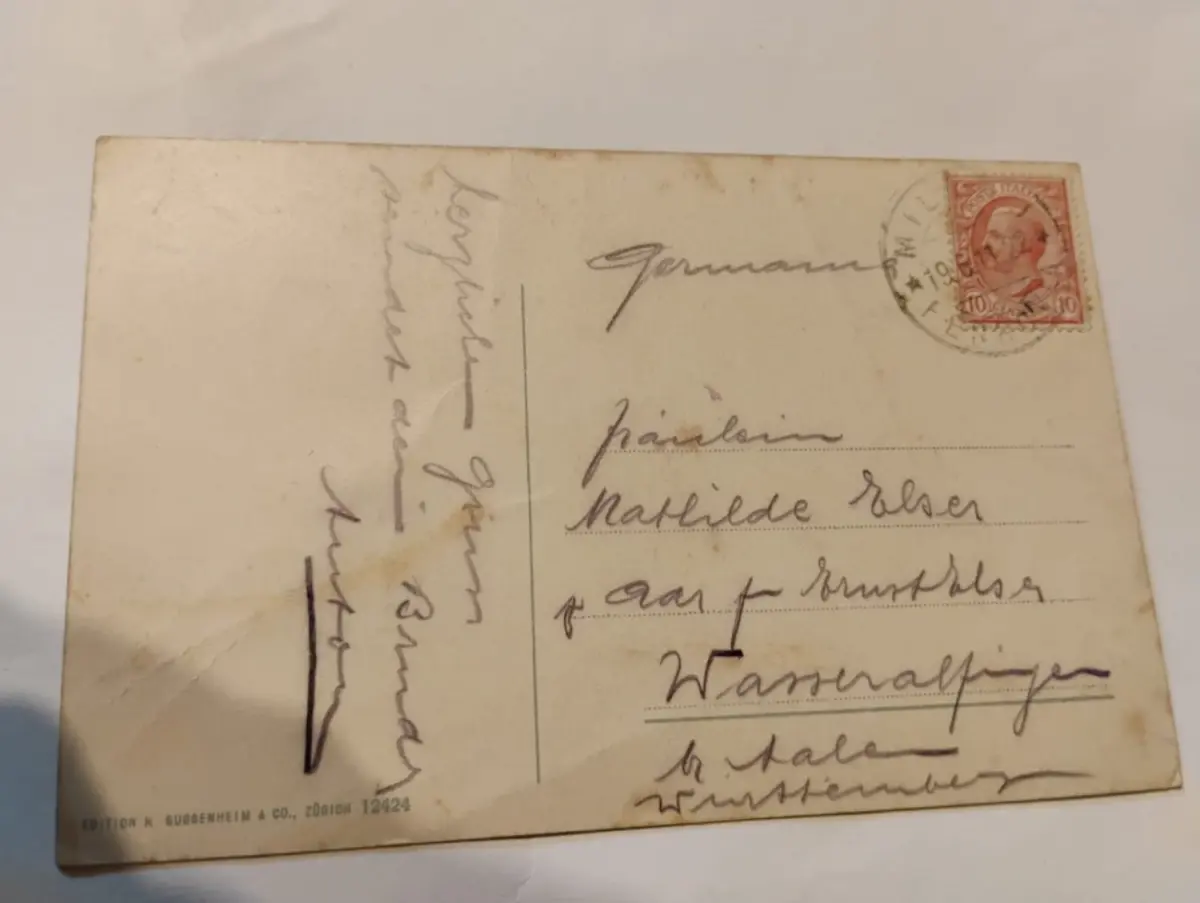 herzlichen Gruss
sendet dein Bruder
Anton
Germania
Fräulein
Mathilde Elser
Ernst Elser
Wasseralfingen
b/ Aalen
Württemberg
POSTE ITALIANE
10 10
MIL
FERR
EDITION H. GUGGENHEIM & CO., ZÜRICH 12424